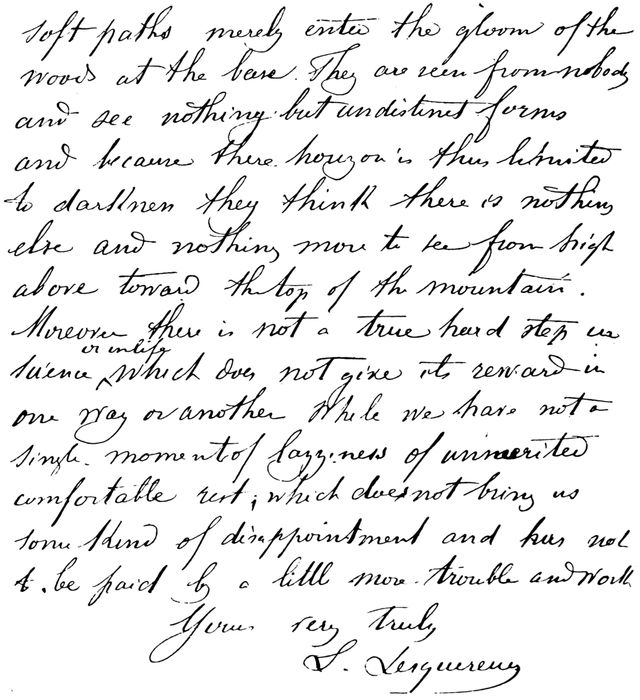 soft paths merely enter the gloom of the
woods at the base. They are seen from nobody
and see nothing but undistinct forms
and because there horizon is thus limited
to darknen they think there is nothing
else and nothing more to see from high
above toward the top of the mountain.
Moreover there is not a true hard step in
or in life
science ^ which does not give its reward in
one way or another While we have not a
single moment of lazziness of unmerited
comfortable rest, which does not bring us
some kind of disappointment and has not
to be paid by a little more trouble and work
Yours very truly
L. Lesquereux